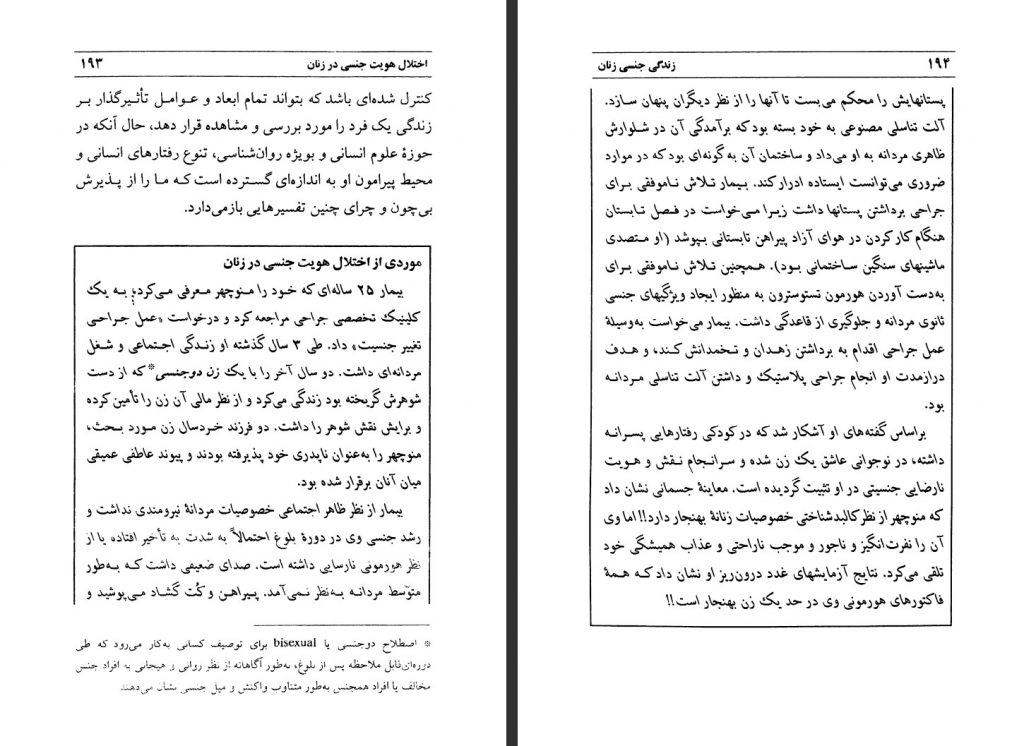 ۱۹۳ اختلال هویت جنسی در زنان
کنترل شده‌ای باشد که بتواند تمام ابعاد و عوامل تأثیرگذار بر
زندگی یک فرد را مورد بررسی و مشاهده قرار دهد، حال آنکه در
حوزهٔ علوم انسانی و بویژه روان‌شناسی، تنوع رفتارهای انسانی و
محیط پیرامون او به اندازه‌ای گسترده است که ما را از پذیرش
بی‌چون و چرای چنین تفسیرهایی بازمی‌دارد.
موردی از اختلال هویت جنسی در زنان
بیمار ۲۵ ساله‌ای که خود را منوچهر معرفی می‌کرد، به یک
کلینیک تخصصی جراحی مراجعه کرد و درخواست «عمل جراحی
تغییر جنسیت» داد. طی ۳ سال گذشته او زندگی اجتماعی و شغل
مردانه‌ای داشت. دو سال آخر را با یک زن دوجنسی* که از دست
شوهرش گریخته بود زندگی می‌کرد و از نظر مالی آن زن را تأمین کرده
و برایش نقش شوهر را داشت. دو فرزند خردسال زن مورد بحث،
منوچهر را به‌عنوان ناپدری خود پذیرفته بودند و پیوند عاطفی عمیقی
میان آنان برقرار شده بود.
بیمار از نظر ظاهر اجتماعی خصوصیات مردانهٔ نیرومندی نداشت و
رشد جنسی وی در دورهٔ بلوغ احتمالاً به شدت به تأخیر افتاده یا از
نظر هورمونی نارسایی داشته است. صدای ضعیفی داشت که به‌طور
متوسط مردانه به‌نظر نمی‌آمد. پیراهن و کُت گشاد می‌پوشید و
* اصطلاح دوجنسی یا bisexual برای توصیف کسانی به‌کار می‌رود که طی
دوره‌ای قابل ملاحظه پس از بلوغ، به‌طور آگاهانه از نظر روانی و هیجانی به افراد جنس
مخالف یا افراد همجنس به‌طور متناوب واکنش و میل جنسی نشان می‌دهند.
۱۹۴ زندگی جنسی زنان
پستانهایش را محکم می‌بست تا آنها را از نظر دیگران پنهان سازد.
آلت تناسلی مصنوعی به خود بسته بود که برآمدگی آن در شلوارش
ظاهری مردانه به او می‌داد و ساختمان آن به گونه‌ای بود که در موارد
ضروری می‌توانست ایستاده ادرار کند. بیمار تلاش ناموفقی برای
جراحی برداشتن پستانها داشت زیرا می‌خواست در فصل تابستان
هنگام کار کردن در هوای آزاد پیراهن تابستانی بپوشد (او متصدی
ماشینهای سنگین ساختمانی بود). همچنین تلاش ناموفقی برای
به‌دست آوردن هورمون تستوسترون به منظور ایجاد ویژگیهای جنسی
ثانوی مردانه و جلوگیری از قاعدگی داشت. بیمار می‌خواست به‌وسیلهٔ
عمل جراحی اقدام به برداشتن زهدان و تخمدانش کند، و هدف
درازمدت او انجام جراحی پلاستیک و داشتن آلت تناسلی مردانه
بود.
براساس گفته‌های او آشکار شد که در کودکی رفتارهایی پسرانه
داشته، در نوجوانی عاشق یک زن شده و سرانجام نقش و هویت
نارضایی جنسیتی در او تثبیت گردیده است. معاینهٔ جسمانی نشان داد
که منوچهر از نظر کالبدشناختی خصوصیات زنانهٔ بهنجار دارد!! اما وی
آن را نفرت‌انگیز و ناجور و موجب ناراحتی و عذاب همیشگی خود
تلقی می‌کرد. نتایج آزمایشهای غدد درون‌ریز او نشان داد که همهٔ
فاکتورهای هورمونی وی در حد یک زن بهنجار است!!